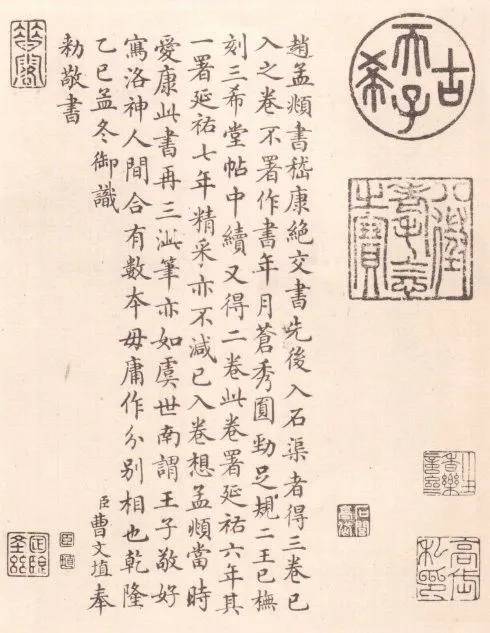 古希天子
八徵耄念之寶
趙孟頫書嵇康絕交書先後入石渠者得三卷已
入之卷不署作書年月蒼秀圓勁足規二王已橅
刻三希堂帖中續又得二卷此卷署延祐六年其
一署延祐七年精采亦不減已入卷想孟頫當時
愛康此書再三泚筆亦如虞世南謂王子敬好
寫洛神人間合有數本毋庸作分別相也乾隆
乙巳孟冬御識 臣曹文埴奉
勅敬書